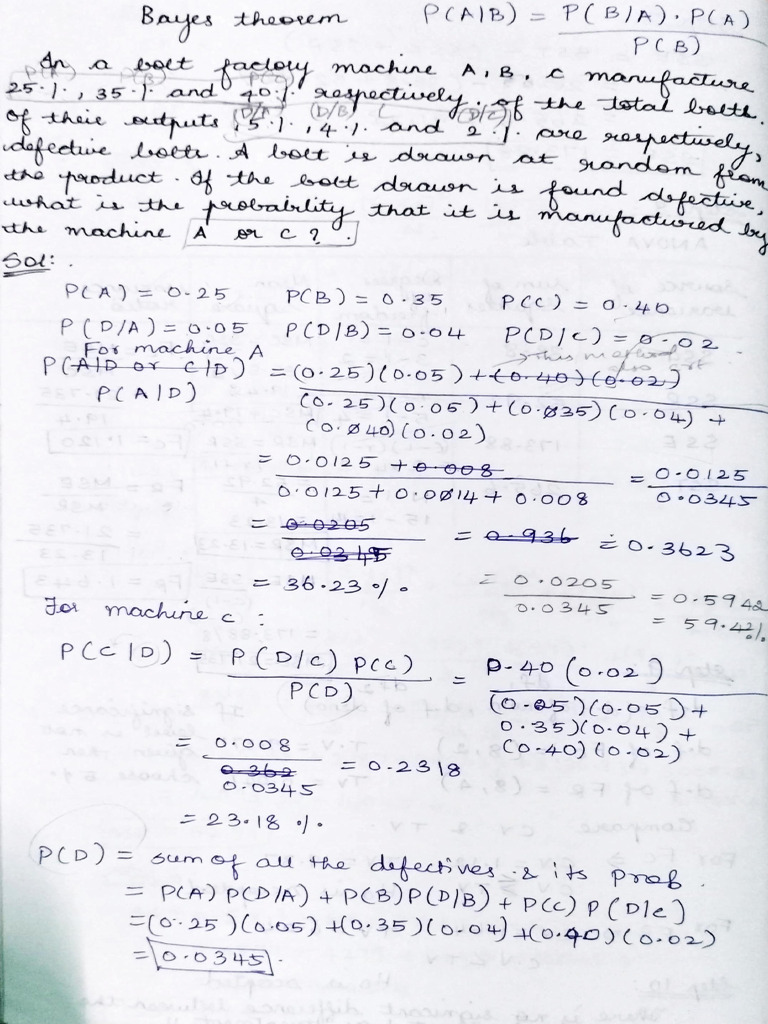 Bayes theorem P(A|B) = P(B/A) · P(A)
P(B)
In a bolt factory machine A, B, C manufacture
P(A) P(B) P(C)
25 %, 35 % and 40 % respectively, of the total bolts.
(D/A) (D/B) (D/C)
Of their outputs, 5 %, 4 % and 2 % are respectively,
defective bolts. A bolt is drawn at random from
the product. If the bolt drawn is found defective,
what is the probability that it is manufactured by
the machine A or C ?
Sol:
P(A) = 0.25 P(B) = 0.35 P(C) = 0.40
P(D/A) = 0.05 P(D|B) = 0.04 P(D/C) = 0.02
For machine A → this method also
P(A|D or C|D) = (0.25)(0.05) + (0.40)(0.02)
P(A|D) (0.25)(0.05) + (0.035)(0.04) +
(0.040)(0.02)
= 0.0125 + 0.008 = 0.0125
0.0125 + 0.0014 + 0.008 0.0345
= 0.0205 = 0.936 = 0.3623
0.0345
= 36.23 %. = 0.0205 = 0.5942
0.0345 = 59.42%
For machine C :
P(C|D) = P(D/C) P(C) = 0.40 (0.02)
P(D) (0.25)(0.05) +
0.35)(0.04) +
(0.40)(0.02)
= 0.008 = 0.2318
0.362
0.0345
= 23.18 %.
P(D) = sum of all the defectives & its prob.
= P(A) P(D/A) + P(B) P(D/B) + P(C) P(D/C)
= (0.25)(0.05) + (0.35)(0.04) + (0.40)(0.02)
= 0.0345.